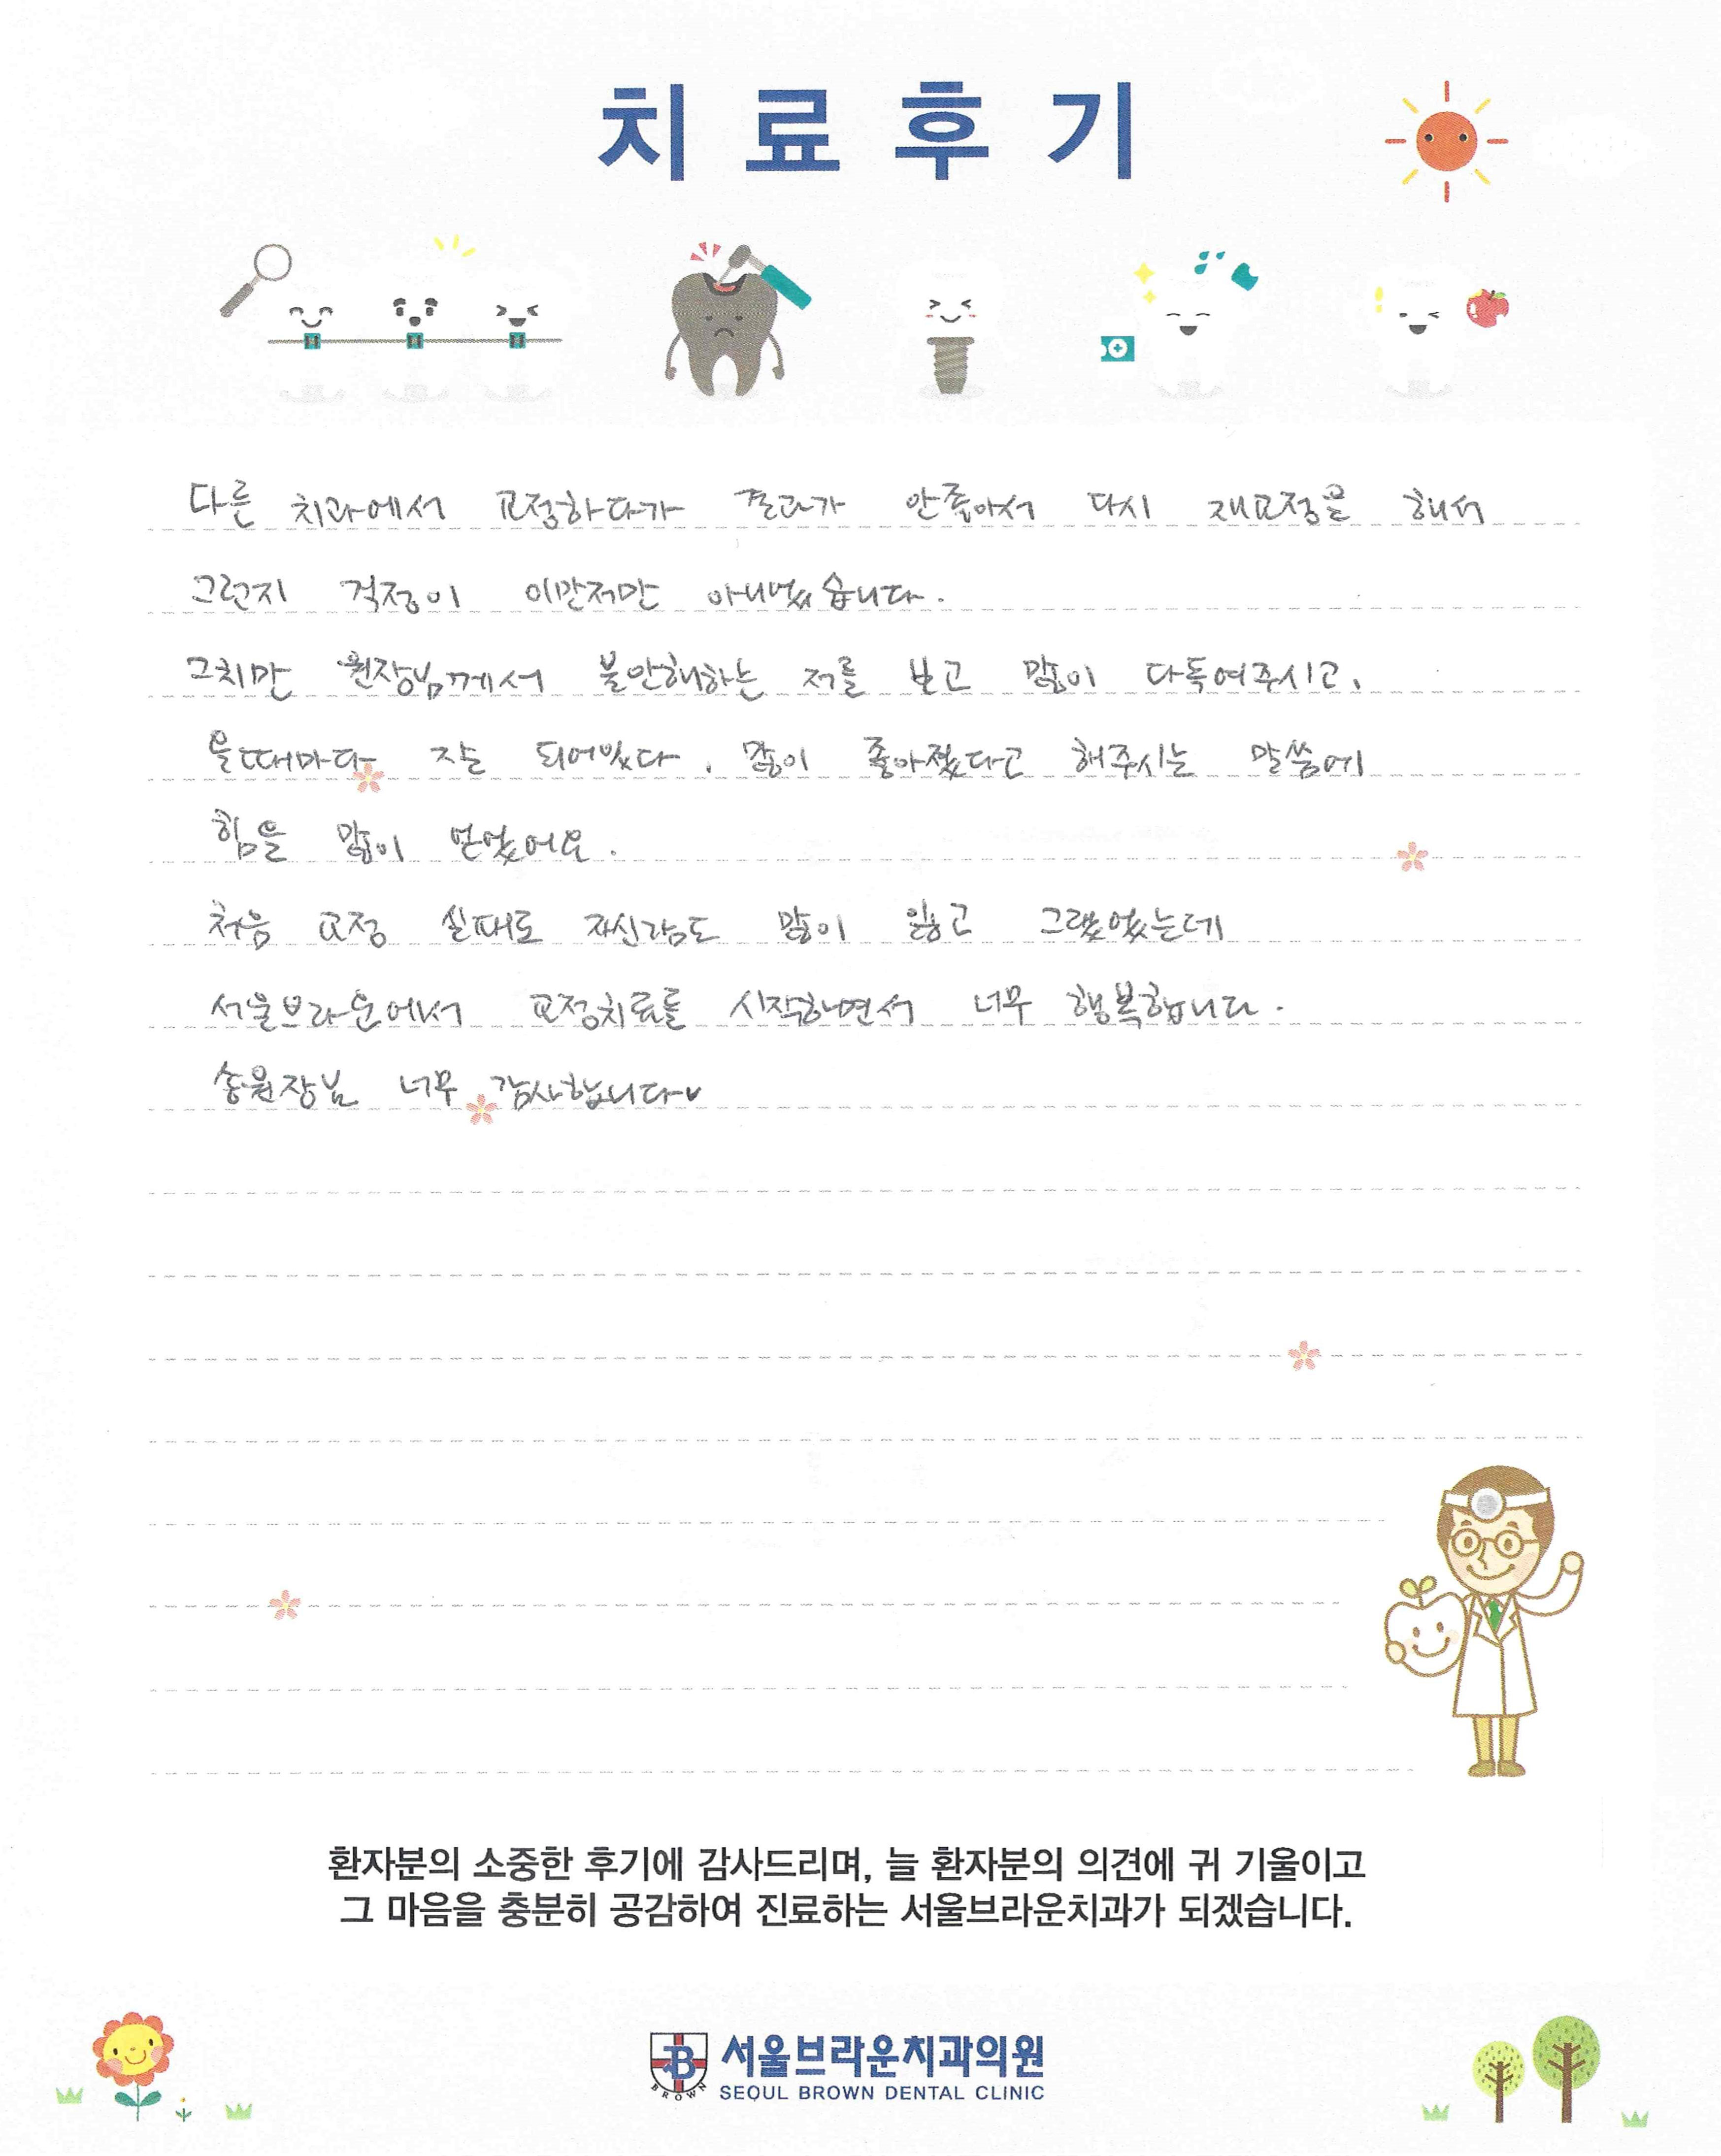 치료후기
다른 치과에서 교정하다가 결과가 안좋아서 다시 재교정을 해서
그런지 걱정이 이만저만 아니었습니다.
그치만 원장님께서 불안해하는 저를 보고 많이 다독여주시고,
올때마다 잘 되어있다, 많이 좋아졌다고 해주시는 말씀에
힘을 많이 얻었어요.
처음 교정 실패로 자신감도 많이 잃고 그랬었는데
서울브라운에서 교정치료를 시작하면서 너무 행복합니다.
송원장님 너무 감사합니다♥
환자분의 소중한 후기에 감사드리며, 늘 환자분의 의견에 귀 기울이고
그 마음을 충분히 공감하여 진료하는 서울브라운치과가 되겠습니다.
B 서울브라운치과의원
BROWN SEOUL BROWN DENTAL CLINIC